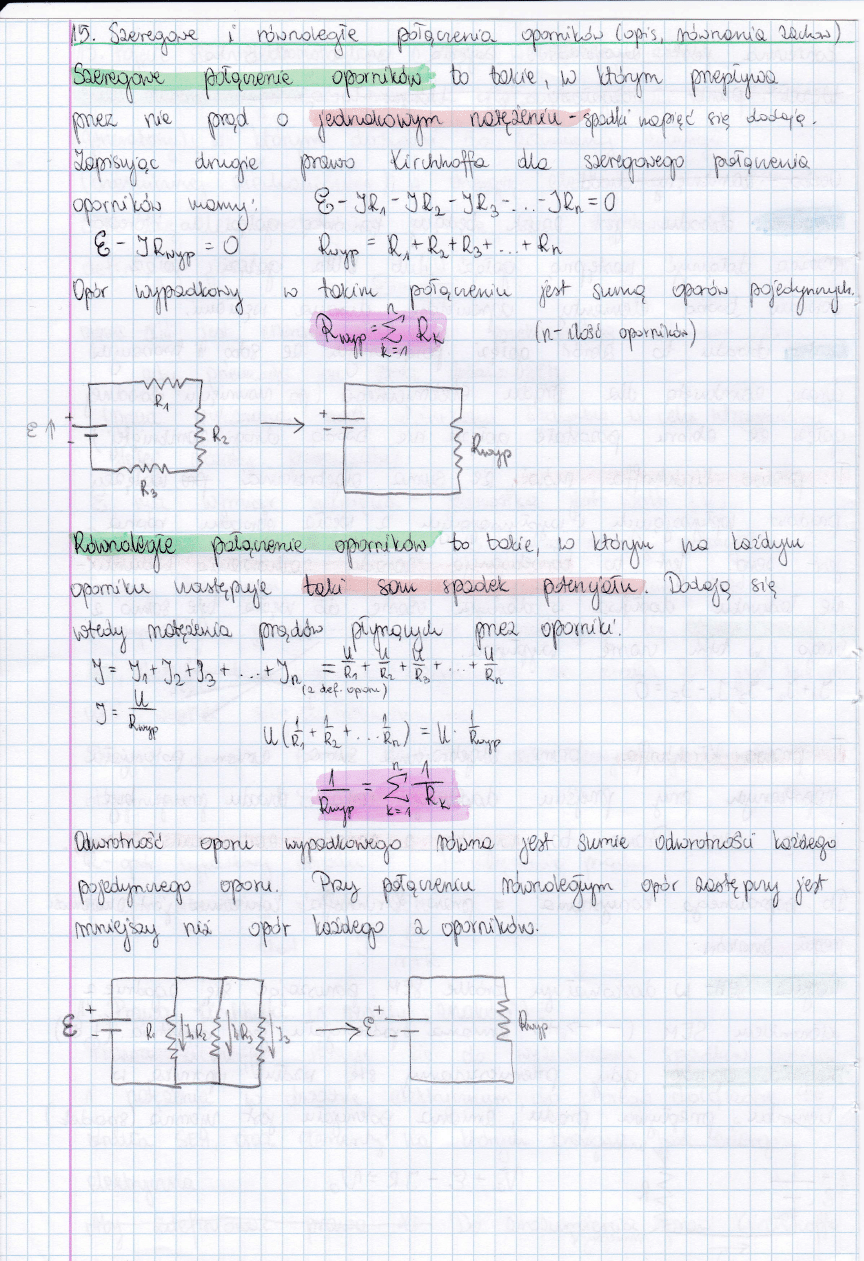 15. Szeregowe i równoległe połączenia oporników (opis, równania zachow)
Szeregowe połączenie oporników to takie, w którym przepływa
przez nie prąd o jednakowym natężeniu - spadki napięć się dodają.
Zapisując drugie prawo Kirchhoffa dla szeregowego połączenia
oporników mamy: Ɛ - JR₁ - JR₂ - JR₃ - ... - JRₙ = 0
Ɛ - JRwyp = 0 Rwyp = R₁ + R₂ + R₃ + ... + Rₙ
Opór wypadkowy w takim połączeniu jest sumą oporów pojedynczych.
Rwyp = ∑ₖ₌₁ⁿ Rₖ (n - ilość oporników)
Ɛ ↑ + - R₁ R₂ R₃ → + - Rwyp
Równoległe połączenie oporników to takie, w którym na każdym
oporniku następuje taki sam spadek potencjału. Dodają się
wtedy natężenia prądów płynących przez oporniki.
J = J₁ + J₂ + J₃ + ... + Jₙ = U/R₁ + U/R₂ + U/R₃ + ... + U/Rₙ
(z def. oporu)
J = U/Rwyp
U(1/R₁ + 1/R₂ + ... 1/Rₙ) = U · 1/Rwyp
1/Rwyp = ∑ₖ₌₁ⁿ 1/Rₖ
Odwrotność oporu wypadkowego równa jest sumie odwrotności każdego
pojedynczego oporu. Przy połączeniu równoległym opór zastępczy jest
mniejszy niż opór każdego z oporników.
Ɛ + - R₁ ↓J₁ R₂ ↓ R₃ ↓J₃ → Ɛ + - Rwyp